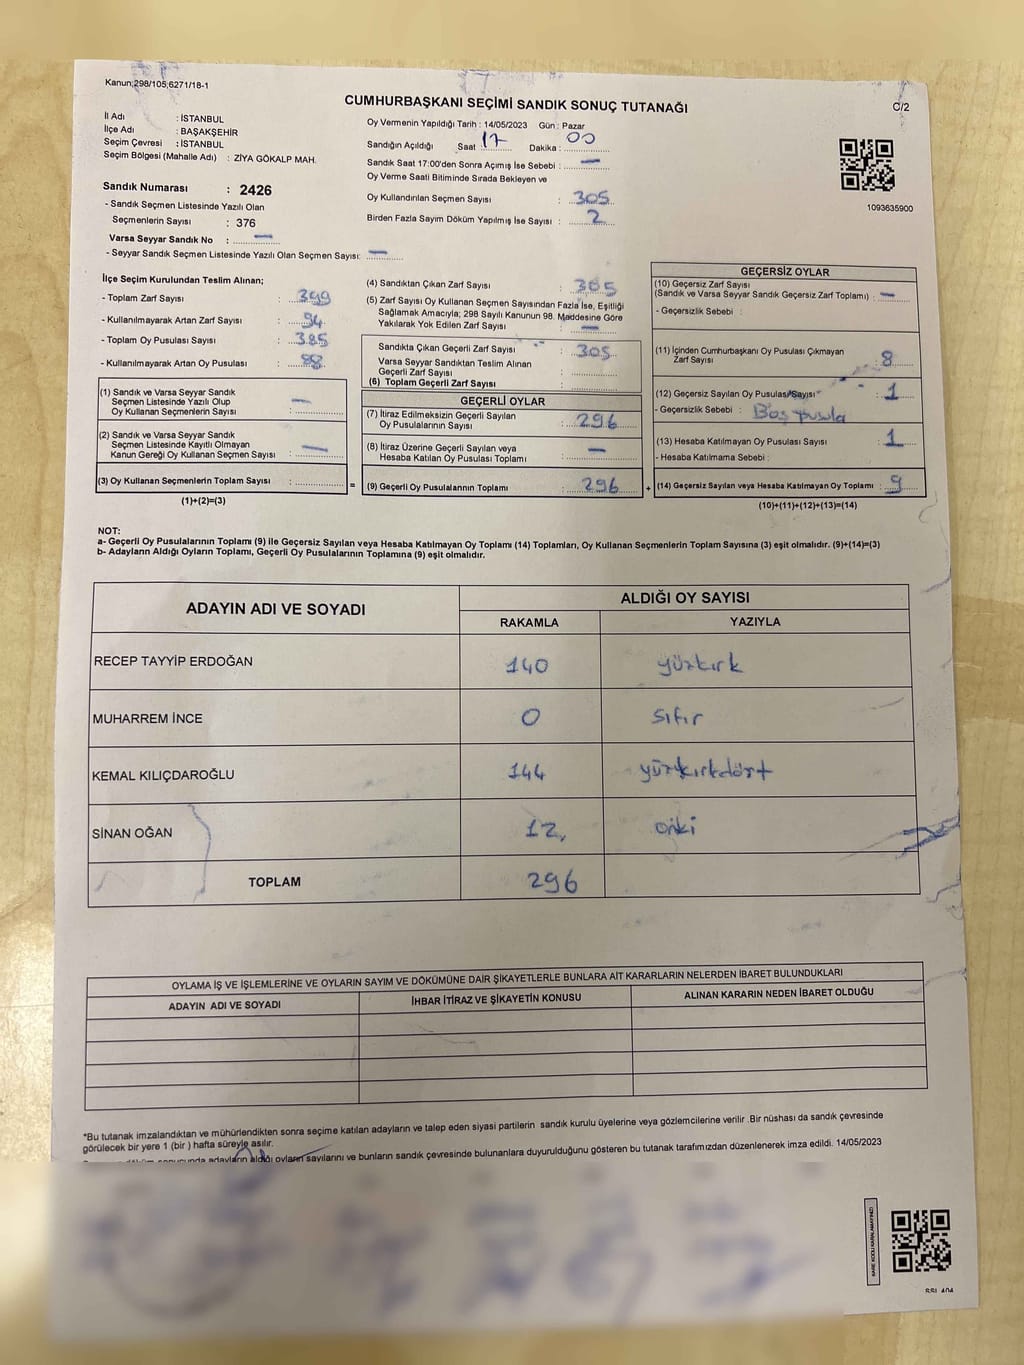 Kanun;298/105,6271/18-1
CUMHURBAŞKANI SEÇİMİ SANDIK SONUÇ TUTANAĞI
C/2
İl Adı : İSTANBUL
İlçe Adı : BAŞAKŞEHİR
Seçim Çevresi : İSTANBUL
Seçim Bölgesi (Mahalle Adı) : ZİYA GÖKALP MAH.
Sandık Numarası : 2426
- Sandık Seçmen Listesinde Yazılı Olan
Seçmenlerin Sayısı : 376
Varsa Seyyar Sandık No : —
- Seyyar Sandık Seçmen Listesinde Yazılı Olan Seçmen Sayısı: —
Oy Vermenin Yapıldığı Tarih : 14/05/2023 Gün : Pazar
Sandığın Açıldığı Saat 17 Dakika : 00
Sandık Saat 17:00'den Sonra Açımış İse Sebebi : —
Oy Verme Saati Bitiminde Sırada Bekleyen ve
Oy Kullandırılan Seçmen Sayısı : 305
Birden Fazla Sayım Döküm Yapılmış İse Sayısı : 2
1093635900
İlçe Seçim Kurulundan Teslim Alınan;
- Toplam Zarf Sayısı : 399
- Kullanılmayarak Artan Zarf Sayısı : 94
- Toplam Oy Pusulası Sayısı : 385
- Kullanılmayarak Artan Oy Pusulası : 88
(1) Sandık ve Varsa Seyyar Sandık
Seçmen Listesinde Yazılı Olup
Oy Kullanan Seçmenlerin Sayısı : —
(2) Sandık ve Varsa Seyyar Sandık
Seçmen Listesinde Kayıtlı Olmayan
Kanun Gereği Oy Kullanan Seçmen Sayısı : —
(3) Oy Kullanan Seçmenlerin Toplam Sayısı :
(1)+(2)=(3)
(4) Sandıktan Çıkan Zarf Sayısı : 305
(5) Zarf Sayısı Oy Kullanan Seçmen Sayısından Fazla İse, Eşitliği
Sağlamak Amacıyla; 298 Sayılı Kanunun 98. Maddesine Göre
Yakılarak Yok Edilen Zarf Sayısı : —
Sandıkta Çıkan Geçerli Zarf Sayısı : 305
Varsa Seyyar Sandıktan Teslim Alınan
Geçerli Zarf Sayısı :
(6) Toplam Geçerli Zarf Sayısı :
GEÇERLİ OYLAR
(7) İtiraz Edilmeksizin Geçerli Sayılan
Oy Pusulalarının Sayısı : 296
(8) İtiraz Üzerine Geçerli Sayılan veya
Hesaba Katılan Oy Pusulası Toplamı : —
= (9) Geçerli Oy Pusulalarının Toplamı : 296
GEÇERSİZ OYLAR
(10) Geçersiz Zarf Sayısı
(Sandık ve Varsa Seyyar Sandık Geçersiz Zarf Toplamı) : —
- Geçersizlik Sebebi :
(11) İçinden Cumhurbaşkanı Oy Pusulası Çıkmayan
Zarf Sayısı : 8
(12) Geçersiz Sayılan Oy Pusulası Sayısı : 1
- Geçersizlik Sebebi : Boş pusula
(13) Hesaba Katılmayan Oy Pusulası Sayısı : 1
- Hesaba Katılmama Sebebi :
+ (14) Geçersiz Sayılan veya Hesaba Katılmayan Oy Toplamı : 9
(10)+(11)+(12)+(13)=(14)
NOT:
a- Geçerli Oy Pusulalarının Toplamı (9) ile Geçersiz Sayılan veya Hesaba Katılmayan Oy Toplamı (14) Toplamları, Oy Kullanan Seçmenlerin Toplam Sayısına (3) eşit olmalıdır. (9)+(14)=(3)
b- Adayların Aldığı Oyların Toplamı, Geçerli Oy Pusulalarının Toplamına (9) eşit olmalıdır.
ADAYIN ADI VE SOYADI
ALDIĞI OY SAYISI
RAKAMLA YAZIYLA
RECEP TAYYİP ERDOĞAN 140 yüzkırk
MUHARREM İNCE 0 sıfır
KEMAL KILIÇDAROĞLU 144 yüzkırkdört
SİNAN OĞAN 12, oniki
TOPLAM 296
OYLAMA İŞ VE İŞLEMLERİNE VE OYLARIN SAYIM VE DÖKÜMÜNE DAİR ŞİKAYETLERLE BUNLARA AİT KARARLARIN NELERDEN İBARET BULUNDUKLARI
ADAYIN ADI VE SOYADI İHBAR İTİRAZ VE ŞİKAYETİN KONUSU ALINAN KARARIN NEDEN İBARET OLDUĞU
*Bu tutanak imzalandıktan ve mühürlendikten sonra seçime katılan adayların ve talep eden siyasi partilerin sandık kurulu üyelerine veya gözlemcilerine verilir .Bir nüshası da sandık çevresinde
görülecek bir yere 1 (bir ) hafta süreyle asılır.
sonucunda adayların aldığı oyların sayılarını ve bunların sandık çevresinde bulunanlara duyurulduğunu gösteren bu tutanak tarafımızdan düzenlenerek imza edildi. 14/05/2023